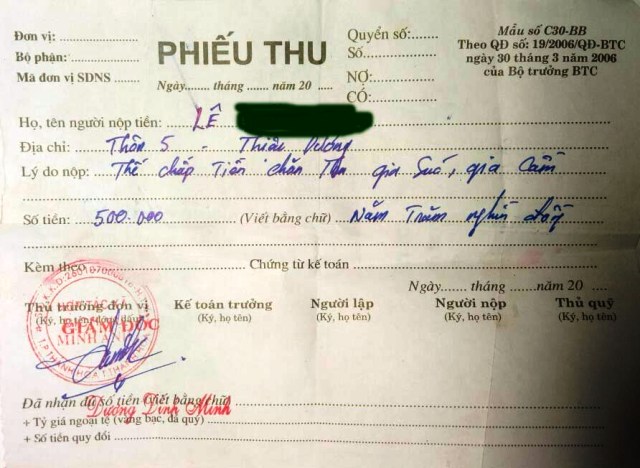 Đơn vị:
Bộ phận:
Mã đơn vị SDNS
PHIẾU THU
Ngày........ tháng ........ năm 20 .....
Quyển số:
Số
NỢ:
CÓ:
Mẫu số C30-BB
Theo QĐ số: 19/2006/QĐ-BTC
ngày 30 tháng 3 năm 2006
của Bộ trưởng BTC
Họ, tên người nộp tiền: LÊ
Địa chỉ: Thôn 5 -
Lý do nộp: Thế chấp Tiền chăn gia Súc, gia Cầm
Số tiền: 500.000 (Viết bằng chữ) Năm Trăm nghìn đồng
Kèm theo Chứng từ kế toán
Ngày........ tháng ........ năm 20 .....
Thủ trưởng đơn vị Kế toán trưởng Người lập Người nộp Thủ quỹ
(Ký, họ tên, đóng dấu) (Ký, họ tên) (Ký, họ tên) (Ký, họ tên) (Ký, họ tên)
GIÁM ĐỐC
MINH
Đã nhận đủ số tiền (Viết bằng chữ)
Dương Đình Minh
+ Tỷ giá ngoại tệ (vàng bạc, đá quý)
+ Số tiền quy đổi